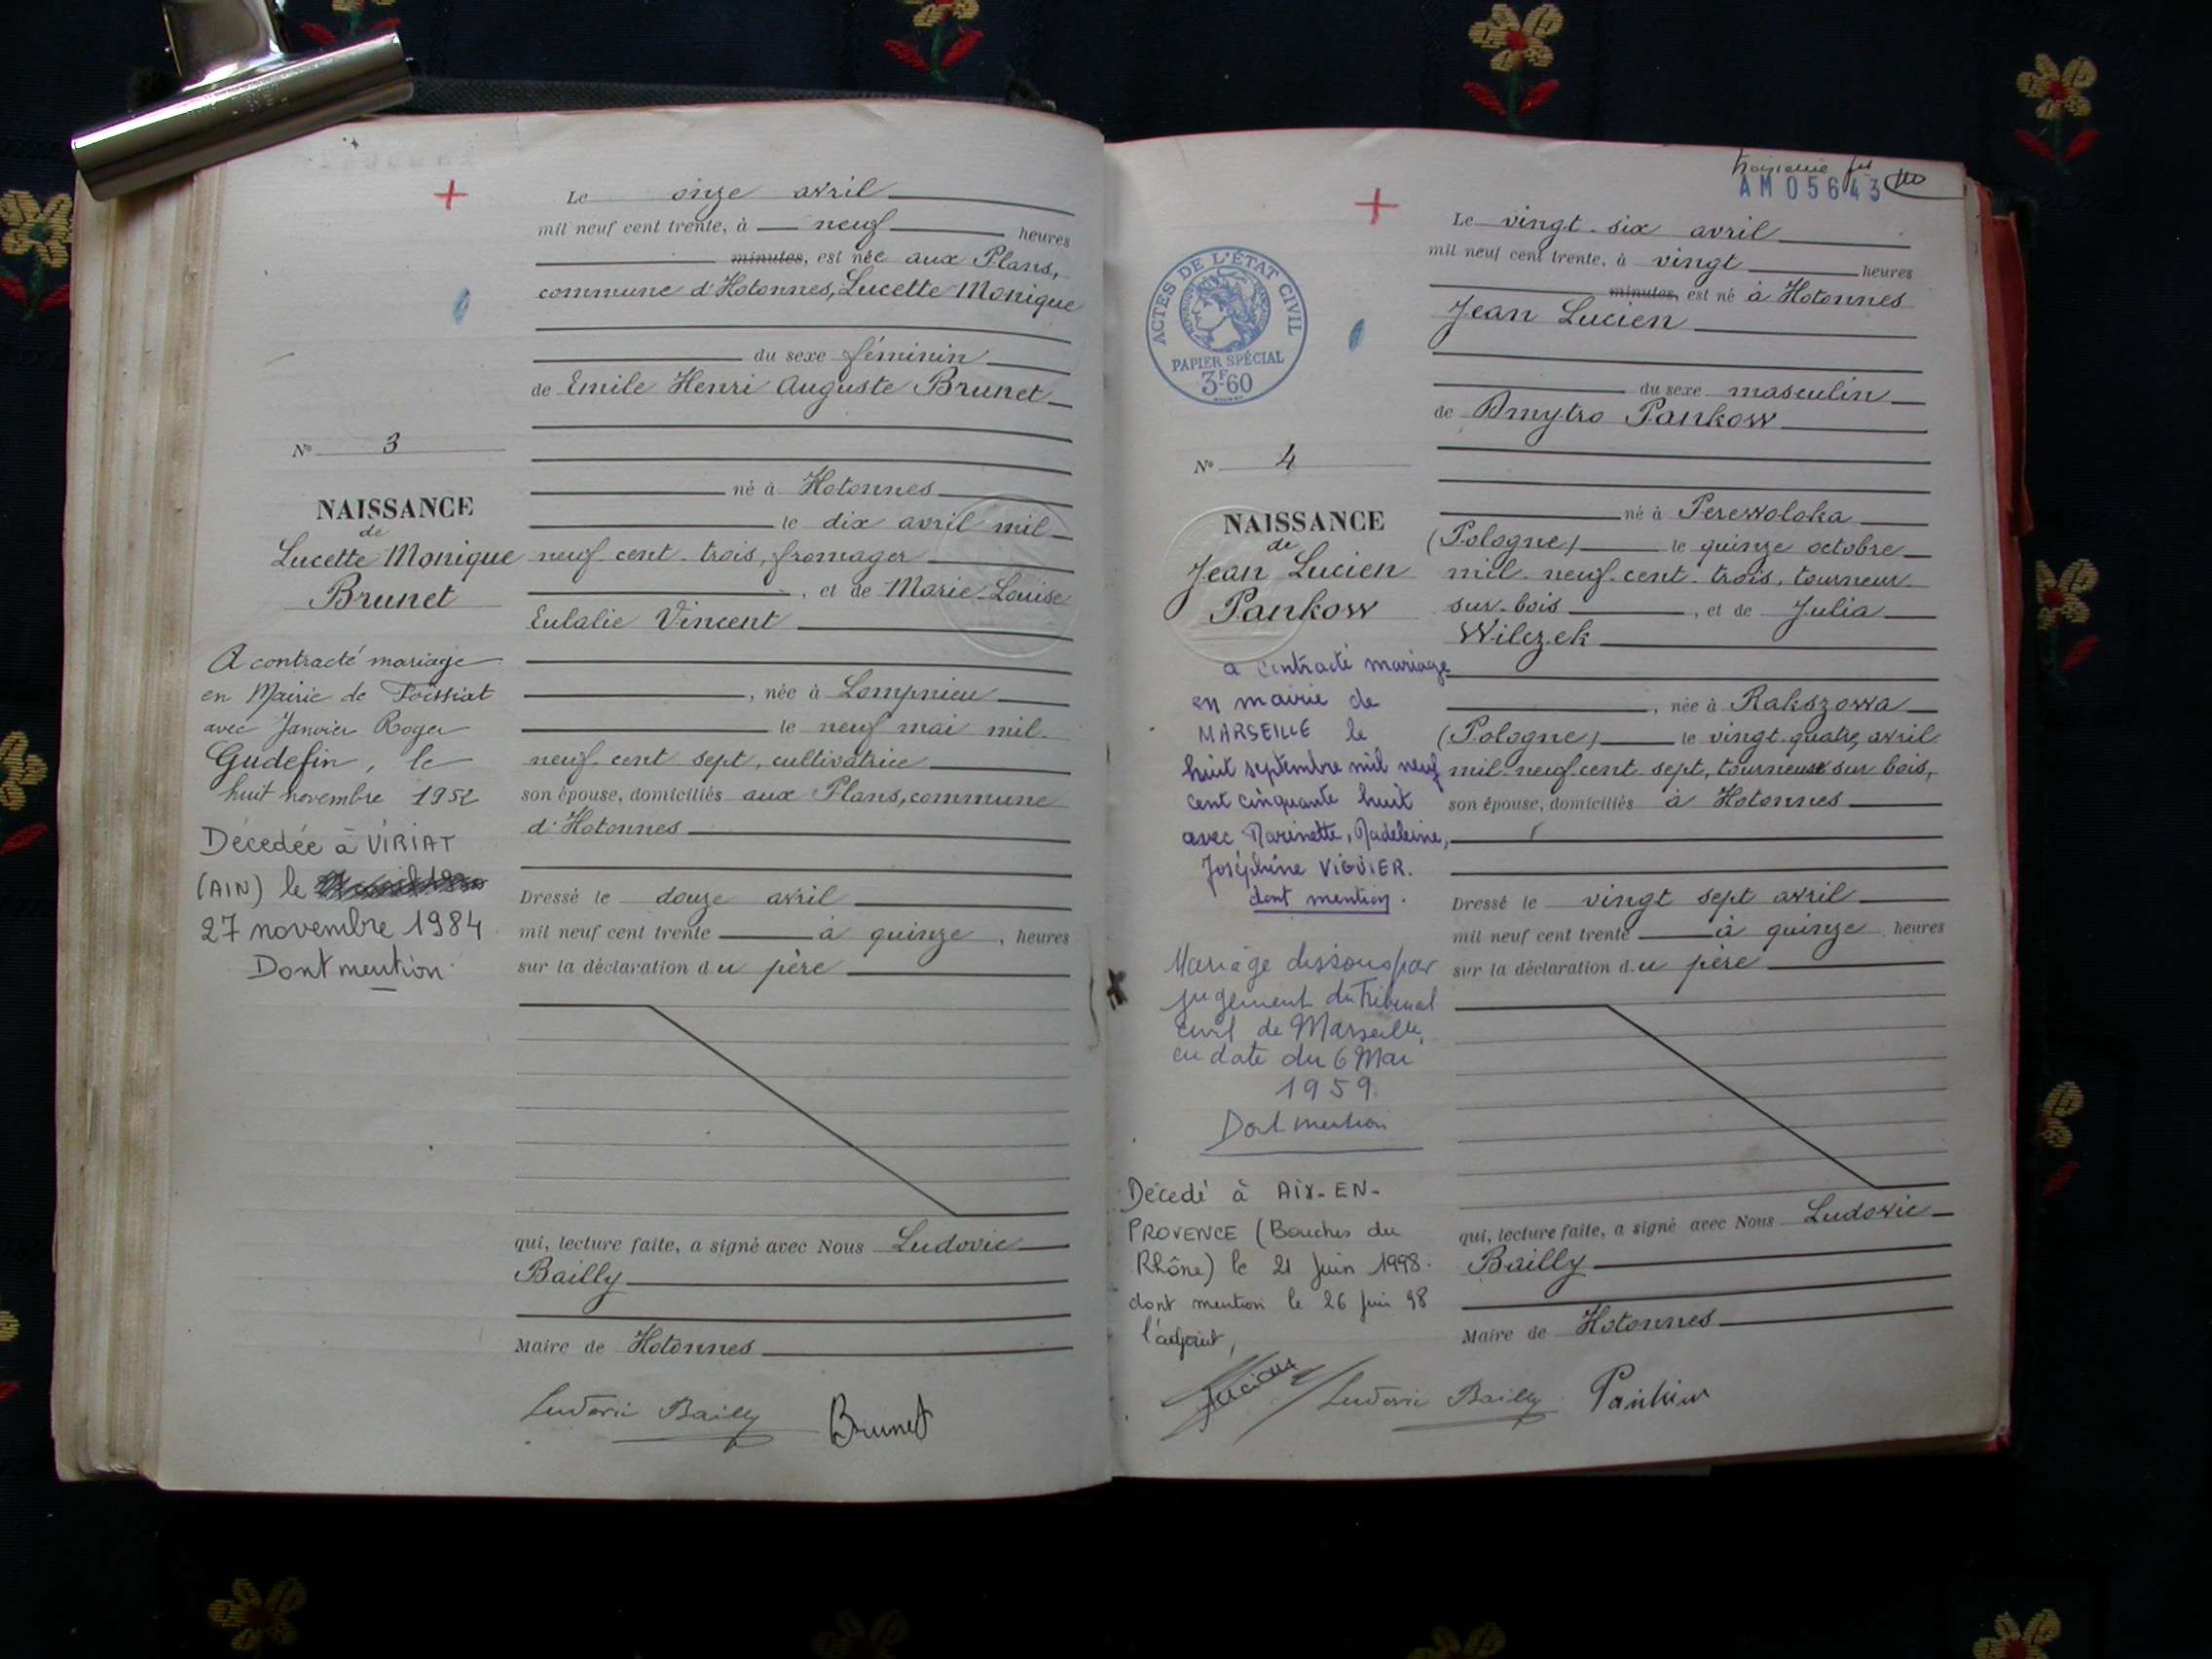 Le onze avril
mil neuf cent trente, à neuf heures
minutes, est née aux Plans,
commune d'Hotonnes, Lucette Monique
du sexe féminin
de Emile Henri Auguste Brunet
N° 3
né à Hotonnes
NAISSANCE
le dix avril mil
de
Lucette Monique
neuf cent trois, fromager
Brunet
, et de Marie-Louise
Eulalie Vincent
A contracté mariage
en Mairie de
, née à Lompnieu
avec Janvier Roger
le neuf mai mil
Gudefin, le
neuf cent sept, cultivatrice
huit novembre 1952
son épouse, domiciliés aux Plans, commune
Décedée à VIRIAT
d'Hotonnes
(AIN) le
27 novembre 1984
Dont mention
Dressé le douze avril
mil neuf cent trente à quinze, heures
sur la déclaration du père
qui, lecture faite, a signé avec Nous Ludovic
Bailly
Maire de Hotonnes
Ludovic Bailly Brunet
AM05643
Le vingt-six avril
mil neuf cent trente, à vingt heures
minutes, est né à Hotonnes
Jean Lucien
ACTES DE L'ÉTAT CIVIL
PAPIER SPÉCIAL
3F60
du sexe masculin
de Dmytro Pankow
N° 4
né à Perewoloka
NAISSANCE
(Pologne) le quinze octobre
de
Jean Lucien
mil neuf cent trois, tourneur
Pankow
sur bois, et de Julia
Wilczek
a contracté mariage
en mairie de
, née à Rakszowa
MARSEILLE le
(Pologne) le vingt-quatre avril
huit septembre mil neuf
mil neuf cent sept, tourneuse sur bois,
cent cinquante huit
son épouse, domiciliés à Hotonnes
avec Marinette, Madeleine,
Joséphine VIGUIER.
dont mention.
Dressé le vingt sept avril
mil neuf cent trente à quinze heures
sur la déclaration du père
Mariage dissous par
jugement du Tribunal
civil de Marseille,
en date du 6 Mai
1959
Dont mention
Décedé à AIX-EN-
PROVENCE (Bouches du
Rhône) le 21 Juin 1998.
dont mention le 26 juin 98
l'adjoint,
qui, lecture faite, a signé avec Nous Ludovic
Bailly
Maire de Hotonnes
Ludovic Bailly Pankiw